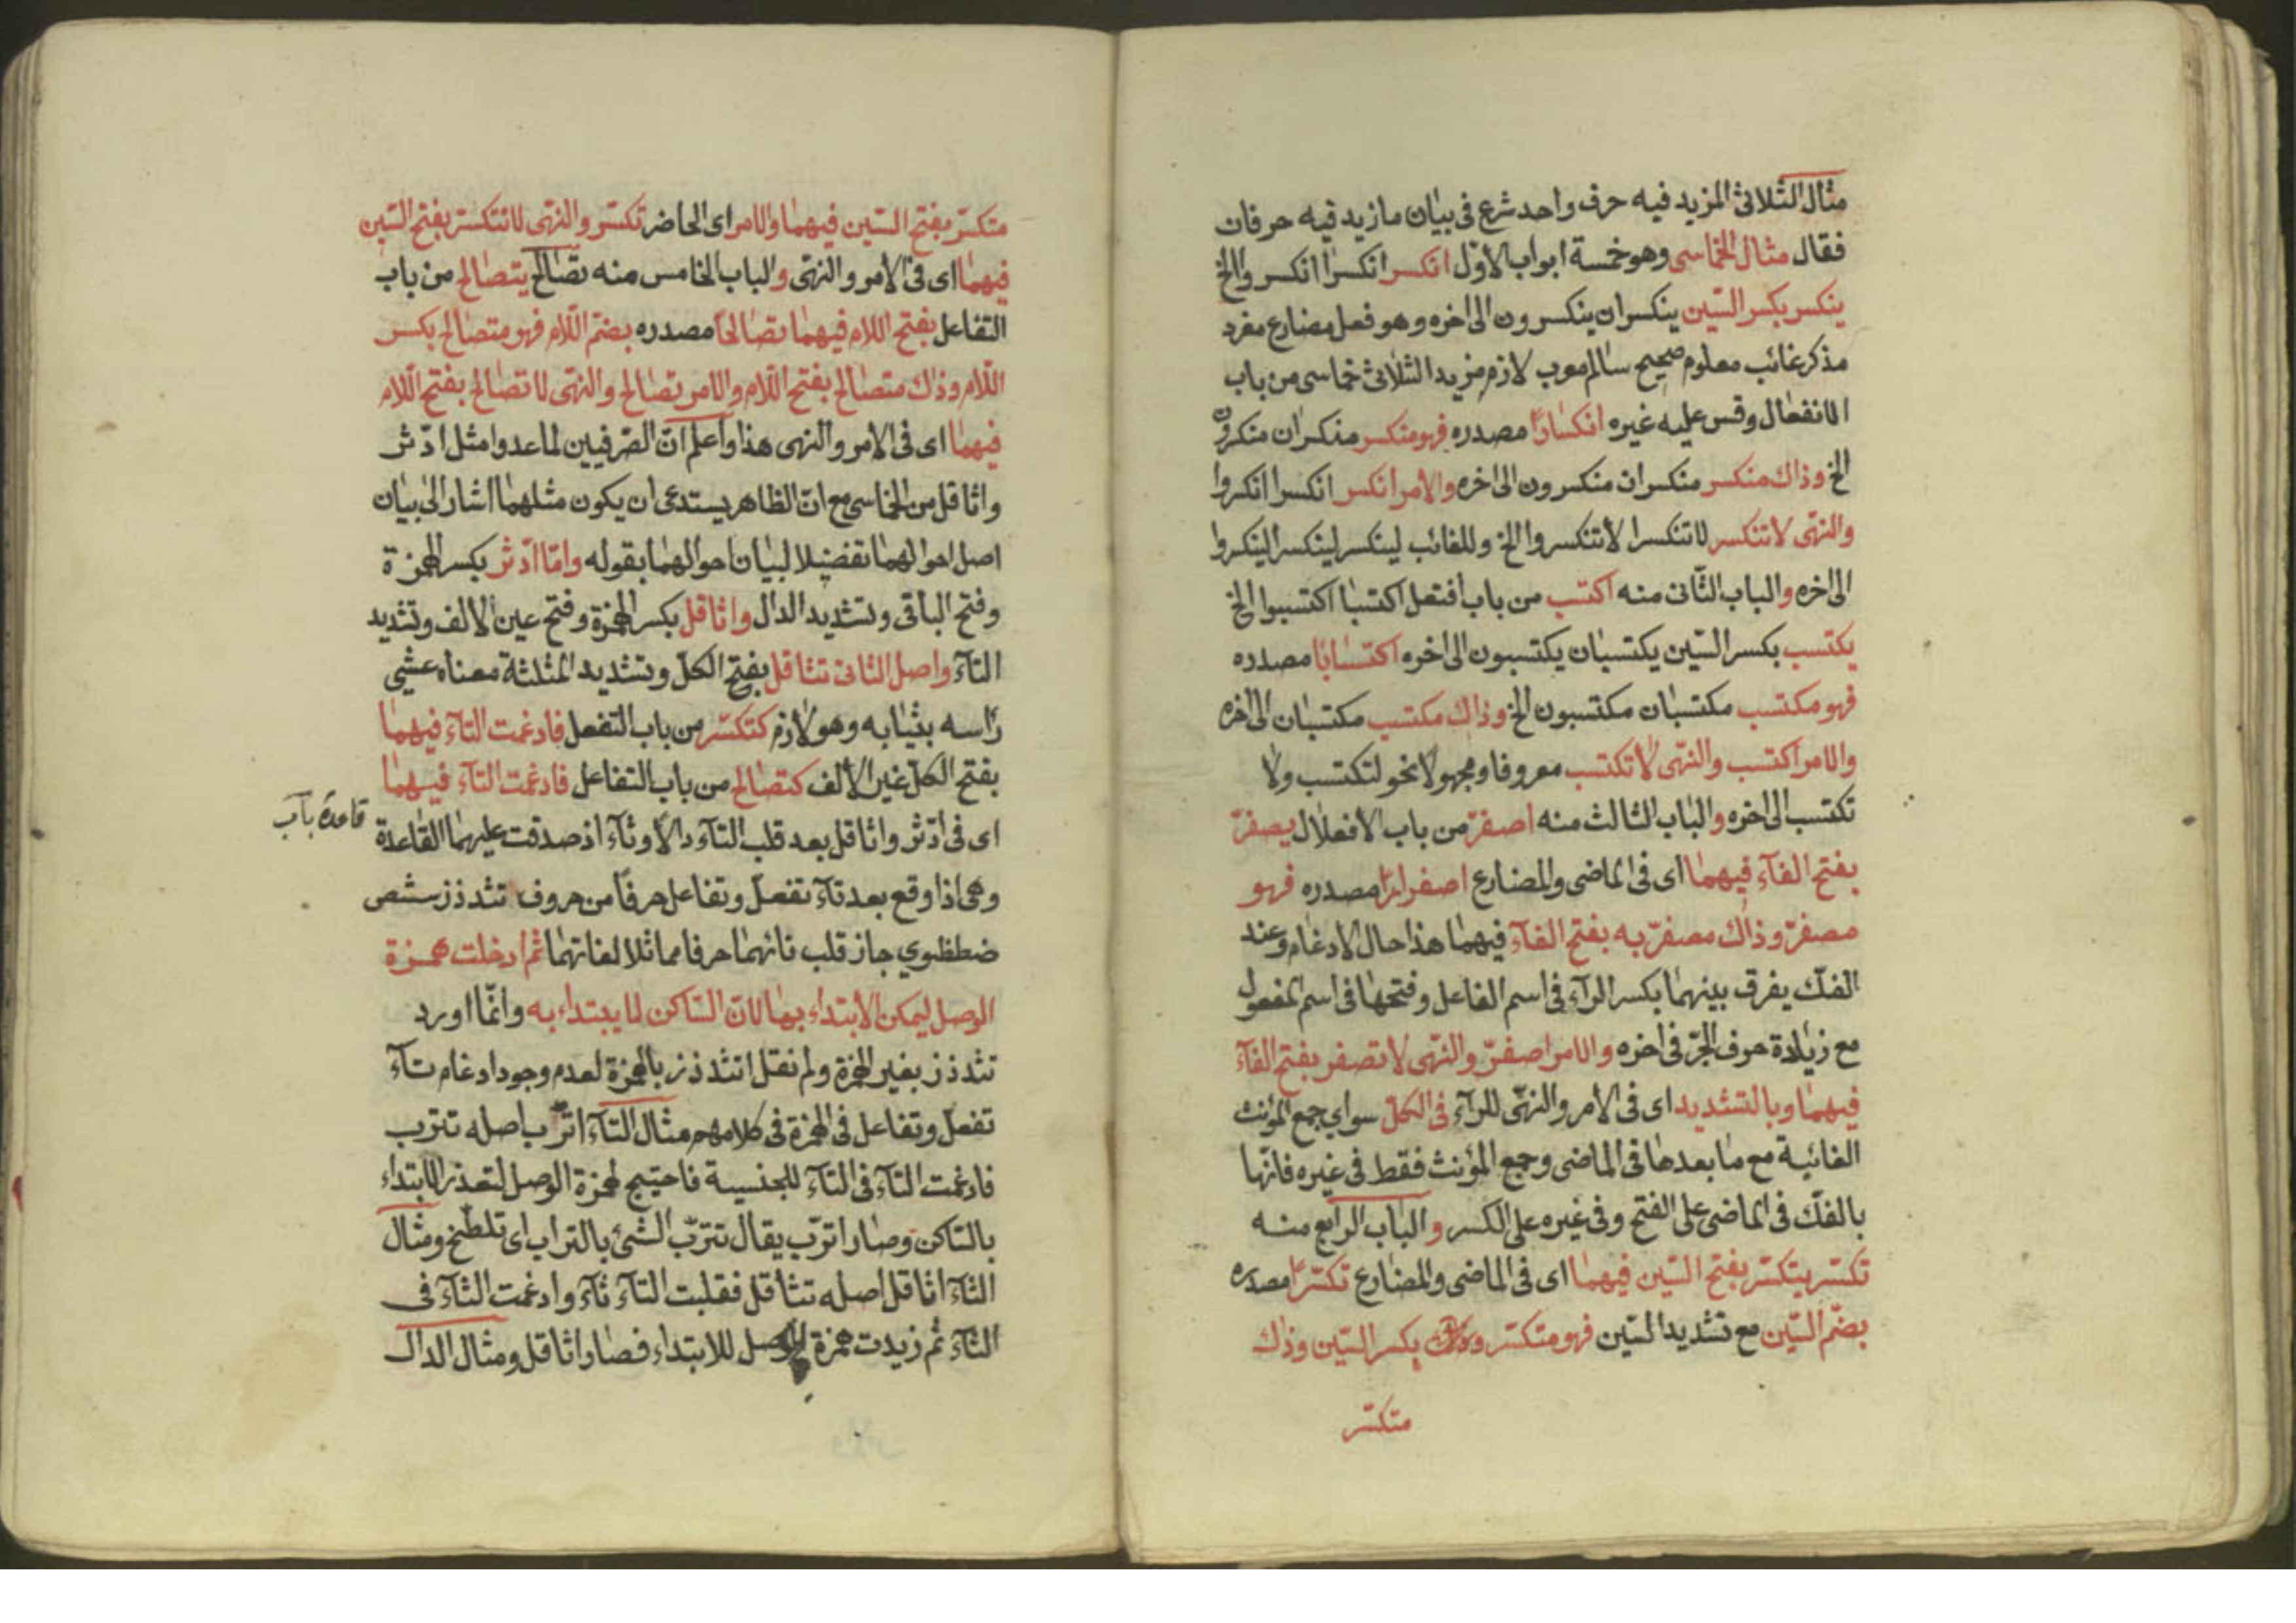 مثال الثلاثى المزيد فيه حرف واحد شرع فى بيان ما زيد فيه حرفان
فقال مثال الخماسى وهو خمسة ابواب الاوّل انكسر انكسرا انكسروا الخ
ينكسر بكسر السّين ينكسران ينكسرون الى اخره وهو فعل مضارع مفرد
مذكر غائب معلوم صحيح سالم معرب لازم مزيد الثلاثى خماسى من باب
الانفعال وقس عليه غيره انكسارًا مصدره فهو منكسر منكسران منكسرون
الخ وذاك منكسر منكسران منكسرون الى اخره والامر انكسر انكسرا انكسروا
والنهى لا تنكسر لا تنكسرا لا تنكسروا الخ وللغائب لينكسر لينكسرا لينكسروا
الى اخره والباب الثّانى منه اكتسب من باب افتعل اكتسبا اكتسبوا الخ
يكتسب بكسر السّين يكتسبان يكتسبون الى اخره اكتسابًا مصدره
فهو مكتسب مكتسبان مكتسبون الخ وذاك مكتسب مكتسبان الى اخره
والامر اكتسب والنّهى لا تكتسب معروفا ومجهولا نحو لتكتسب ولا
تكتسب الى اخره والباب الثالث منه اصفرّ من باب الافعلال يصفرّ
بفتح الفآء فيهما اى فى الماضى والمضارع اصفرارًا مصدره فهو
مصفرّ وذاك مصفرّ به بفتح الفآء فيهما هذا حال الادغام وعند
الفكّ يفرق بينهما بكسر الرآء فى اسم الفاعل وفتحها فى اسم المفعول
مع زيادة حرف الجرّ فى اخره والامر اصفرّ والنّهى لا تصفر بفتح الفآء
فيهما وبالتشديد اى فى الامر والنهى للرآء فى الكلّ سواي جمع المؤنث
الغائبة مع ما بعدها فى الماضى وجمع المؤنث فقط فى غيره فانّها
بالفكّ فى الماضى على الفتح وفى غيره على الكسر والباب الرابع منه
تكسّر يتكسّر بفتح السّين فيهما اى فى الماضى والمضارع تكسّرًا مصدره
بضمّ السّين مع تشديد السّين فهو متكسّر بكسر السّين وذاك
متكسّر
متكسّر بفتح السّين فيهما والامر اى الحاضر تكسّر والنهى لا تتكسّر بفتح السّين
فيهما اى فى الامر والنهى والباب الخامس منه تصالح يتصالح من باب
التفاعل بفتح اللام فيهما تصالحًا مصدره بضمّ اللّام فهو متصالح بكسر
اللّام وذاك متصالح بفتح اللّام والامر تصالح والنهى لا تصالح بفتح اللّام
فيهما اى فى الامر والنهى هذا واعلم انّ الصّرفيين لما عدوا مثل ادّثر
واثاقل من الخماسى مع انّ الظاهر يستدعى ان يكون مثلهما اشار الى بيان
اصل احوالهما تفضيلا لبيان احوالهما بقوله وامّا ادّثر بكسر الهمزة
وفتح الباقى وتشديد الدال واثاقل بكسر الهمزة وفتح عين الالف وتشديد
الثآء واصل الثانى تثاقل بفتح الكلّ وتشديد المثلثة معناه عشّى
رأسه بثيابه وهو لازم كتكسّر من باب التفعل فادغمت التآء فيهما
بفتح الكلّ غير الالف كتصالح من باب التفاعل فادغمت التآء فيهما
اى فى ادّثر واثاقل بعد قلب التآء دالا وثآء اذ صدقت عليهما القاعدة
قاعدة باب
وهى اذا وقع بعد تآء تفعل وتفاعل حرفًا من حروف تثدذزسشص
ضطظوي جاز قلب تائهما حرفا مماثلا لفائهما ثم ادخلت همزة
الوصل ليمكن الابتداء بها لانّ السّاكن لا يبتداء به وانّما اورد
تثدذز بغير الهمزة ولم نقل اتثدذز بالهمزة لعدم وجود ادغام تآء
تفعل وتفاعل فى الهمزة فى كلامهم مثال التآء اترّب اصله تترب
فادغمت التآء فى التآء للجنسية فاحتيج لهمزة الوصل لتعذر الابتداء
بالسّاكن وصار اترّب يقال تترّب الشئ بالتراب اى تلطّخ ومثال
الثآء اثاقل اصله تثاقل فقلبت التآء ثآء وادغمت الثآء فى
الثآء ثم زيدت همزة الوصل للابتداء فصار اثاقل ومثال الدال